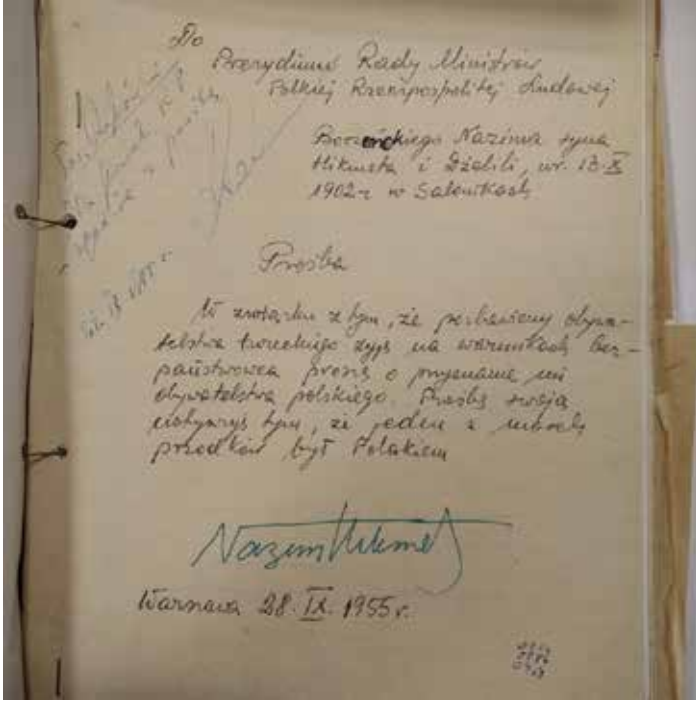 Do
Prezydium Rady Ministrów
Polskiej Rzeczypospolitej Ludowej
Borzenckiego Nazima syna
Hikmeta i Dżelili, ur. 18.X
1902 r w Salonikach
Prośba
W związku z tym, że pozbawiony obywa-
telstwa tureckiego żyję na warunkach bez-
państwowca proszę o przyznanie mi
obywatelstwa polskiego. Prośbę swoją
motywuję tym, że jeden z mych
przodków był Polakiem
Nazim Hikmet
Warszawa 28.IX.1955 r.